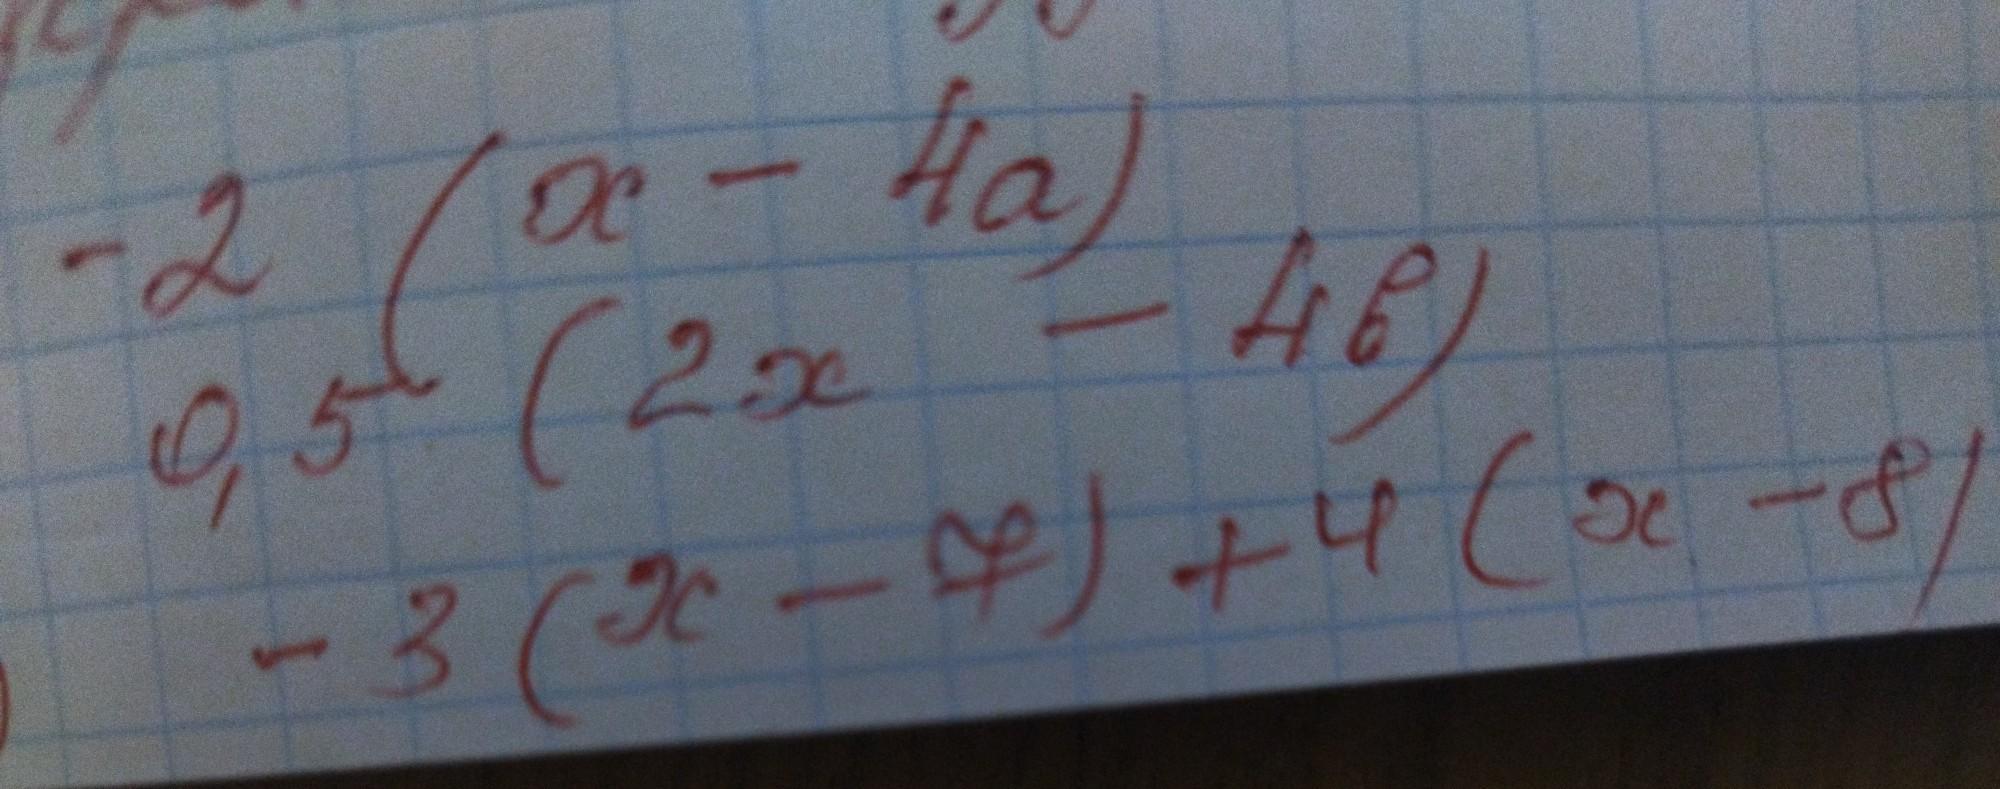 -2 (x - 4a)
0,5 (2x - 4в)
- 3 (x - 7) + 4 (x - 8)